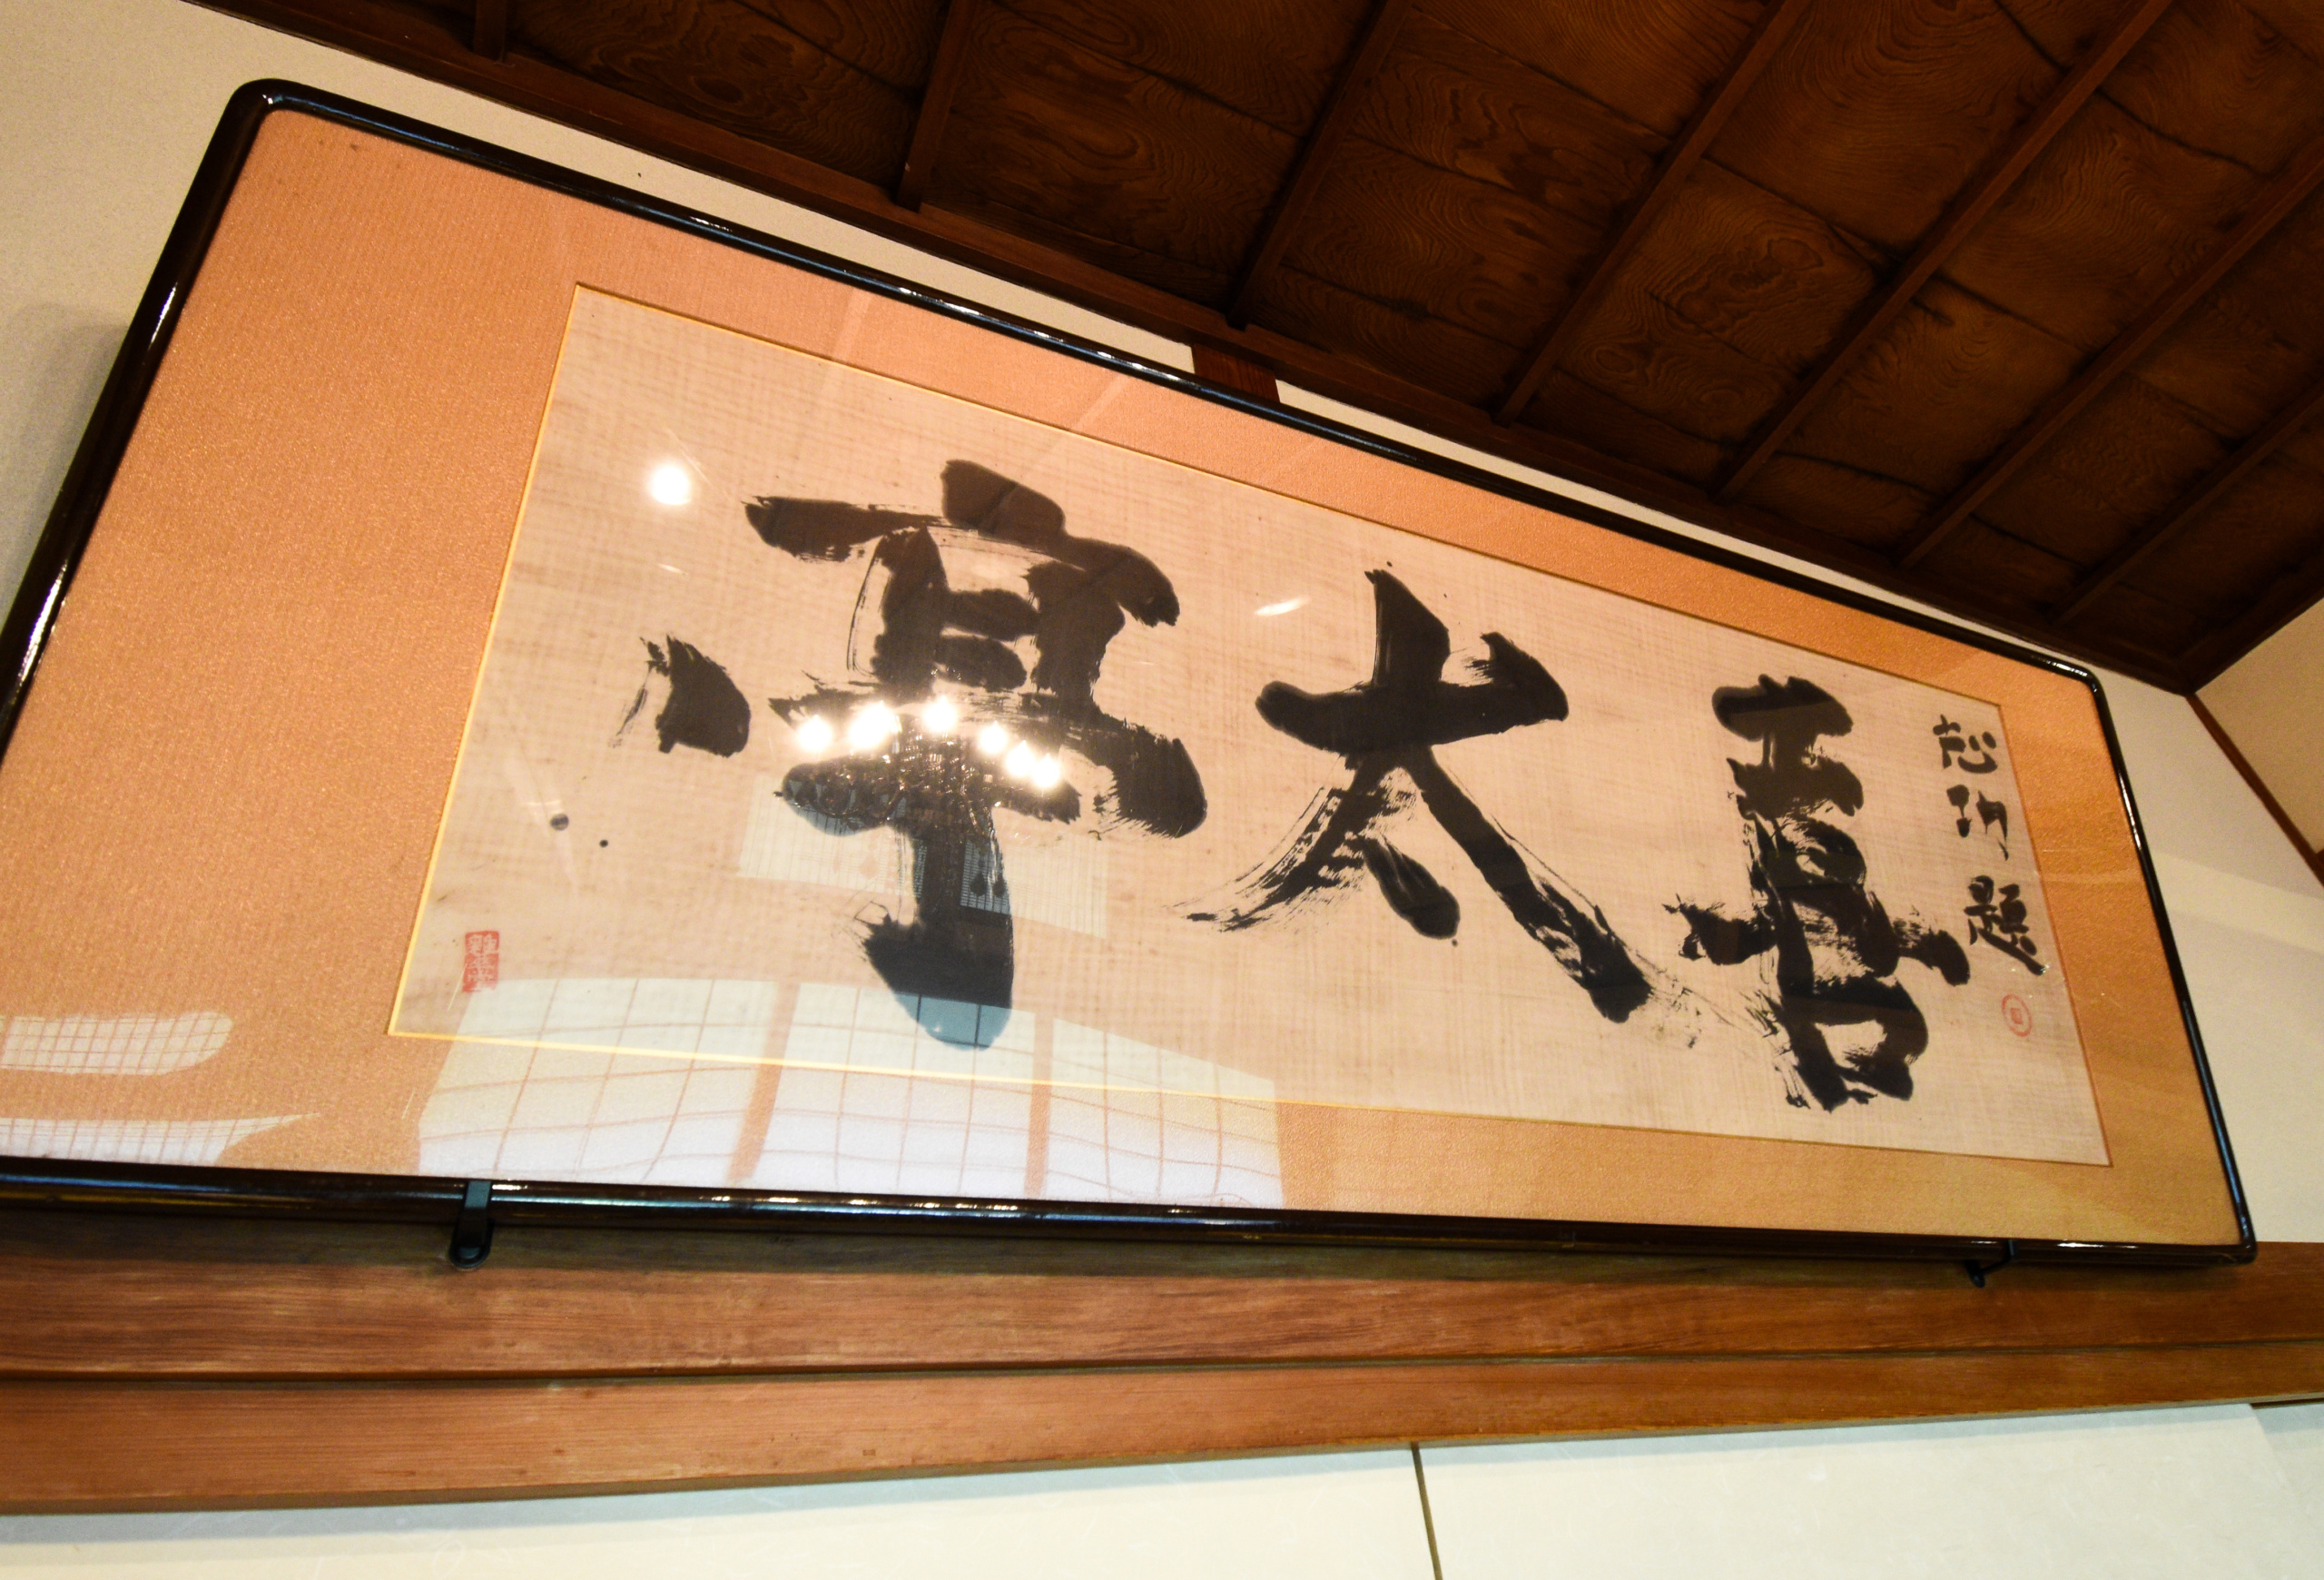 志功題
喜太亭